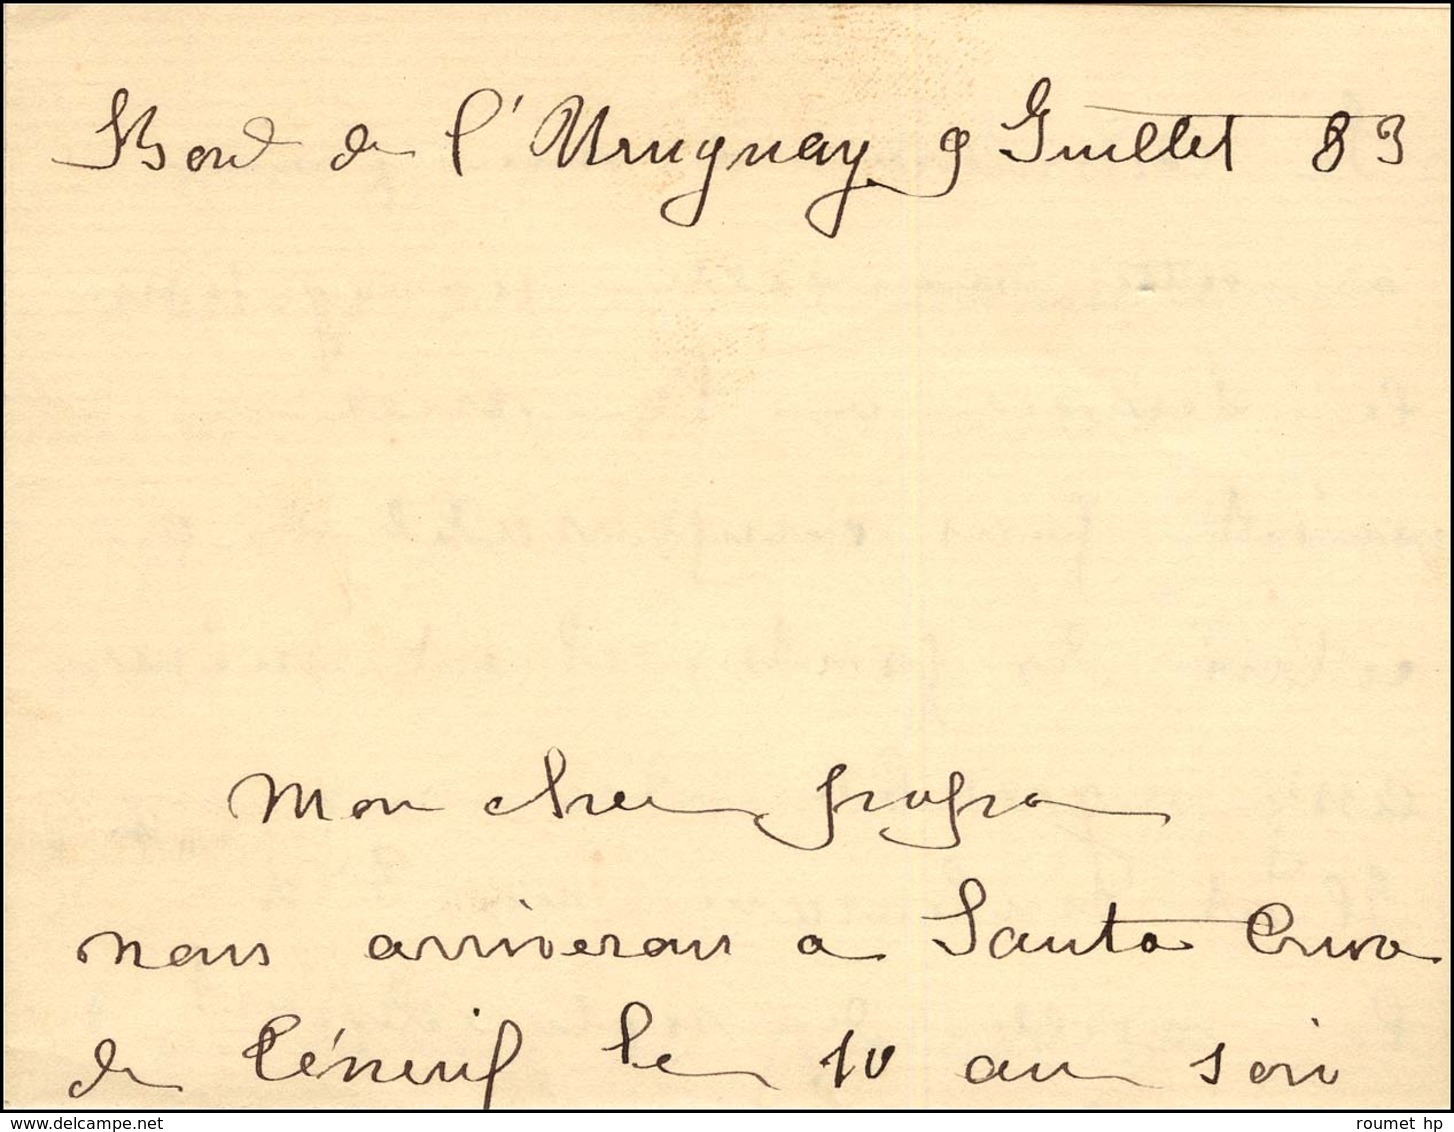 Bord de l'Uruguay 9 Juillet 83
Mon cher papa
nous arriverons a Santa Cruz
de Ténerif le 10 au soir
delcampe.net
roumet hp